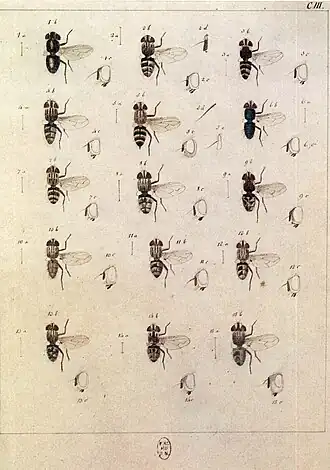 C III.
1 b 2 b 2 d 3 b
1 a 2 a 3 a
1 c 2 c 3 c
4 b 5 b 6 b
4 a 5 a 5 d 6 a
4 c 5 c 6 c
7 b 8 b 9 b
7 a 8 a 9 a
7 c 8 c 9 c
10 b 11 b 12 b
10 a 11 a 12 a
10 c 11 c 12 c
13 b 14 b 15 b
13 a 14 a 15 a
13 c 14 c 15 c